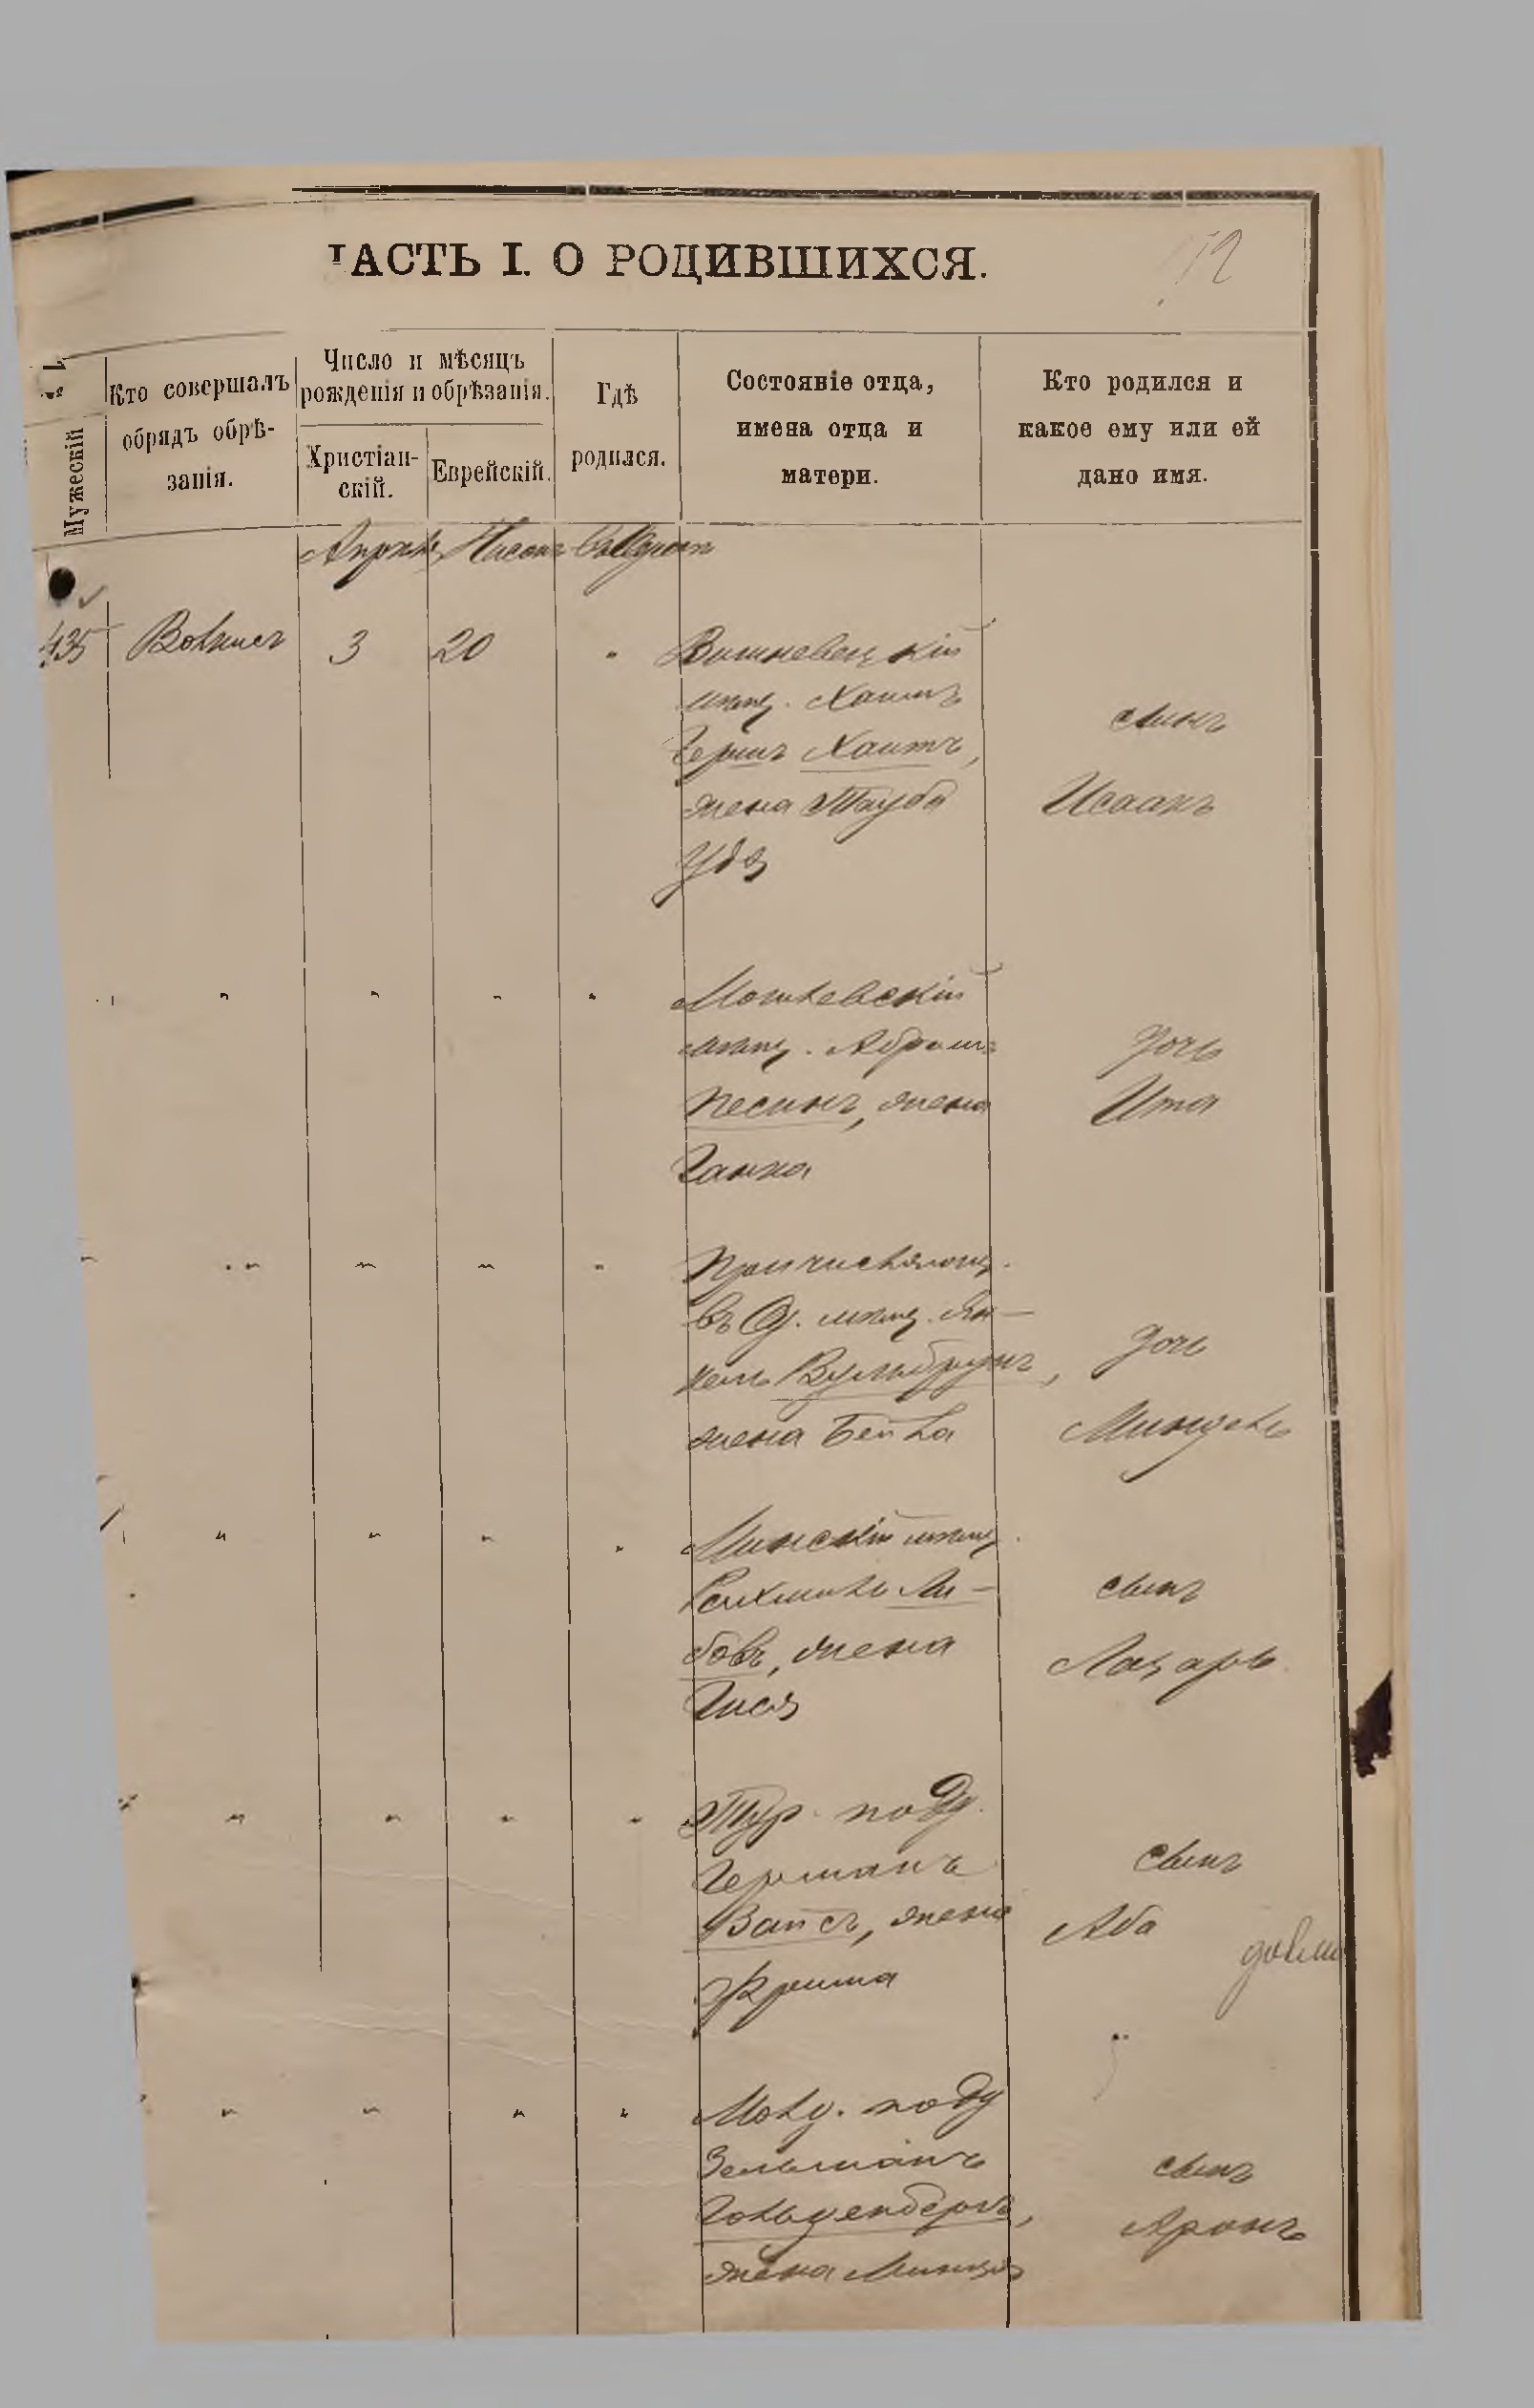 ЧАСТЬ I. О РОДИВШИХСЯ.
12
Мужескій
Кто совершалъ
обрядъ обрѣ-
занія.
Число и мѣсяцъ
рожденія и обрѣзанія.
Христіан-
скій.
Еврейскій.
Гдѣ
родился.
Состояніе отца,
имена отца и
матери.
Кто родился и
какое ему или ей
дано имя.
Апрѣль Нисонъ
435 Вольнеръ 3 20 "
Вишневецкій
мѣщ. Хаимъ
Гершъ Хаитъ,
жена Тауба
Удя
сынъ
Исаакъ
" " " "
Могилевскій
мѣщ. Абрамъ
Песинъ, жена
Ганна
дочь
Ита
" " " "
Причисляющ.
въ О. мѣщ. Ян-
кель Вульбрунъ,
жена Бейла
дочь
Миндель
" " " "
Минскій мѣщ.
Рахмиль Ли-
бовъ, жена
Гися
сынъ
Лазарь
" " " "
Тур. подд.
Германъ
Вайсъ, жена
Фрима
сынъ
Аба
" " " "
Молд. подд
Зельманъ
Гольденбергъ,
жена Минця
сынъ
Аронъ